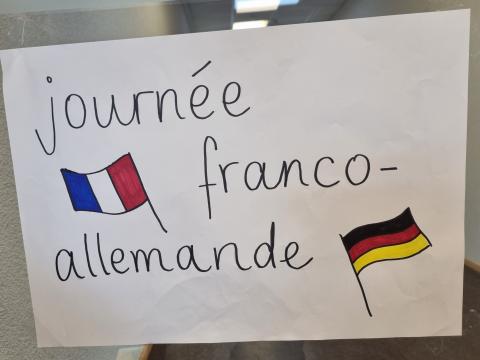 journée
franco-
allemande